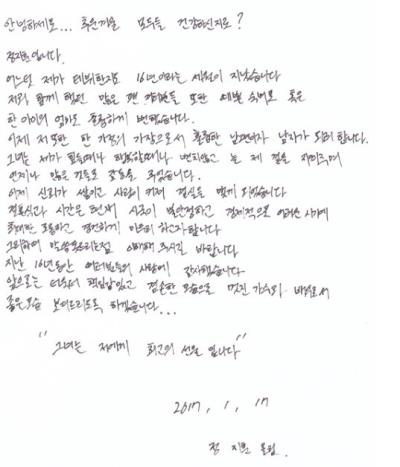 안녕하세요... 추운겨울 모두들 건강하신지요?
정지훈 입니다.
어느덧 제가 데뷔한지도 16년이라는 세월이 지났습니다
저와 함께 했던 많은 팬 여러분들 또한 예쁜 숙녀로 혹은
한 아이의 엄마로 훌륭하게 변했습니다.
이제 저또한 한 가정의 가장으로서 훌륭한 남편이자 남자가 되려 합니다.
그녀는 제가 힘들때나 행복할때나 변치않고 늘 제 곁을 지켜주며
언제나 많은 감동을 주었습니다.
이제 신뢰가 쌓이고 사랑이 커져 결실을 맺게 되었습니다
결혼식과 시간은 현재 시국이 불안정하고 경제적으로 어려운 시기에
최대한 조용하고 경건하게 치르려 하고자합니다
그리하여 말씀 못드리는점 이해해 주시길 바랍니다.
지난 16년동안 여러분들의 사랑에 감사했습니다
앞으로는 더욱더 책임감있고 겸손한 모습으로 멋진 가수와 배우로서
좋은모습 보여드리도록 하겠습니다...
"그녀는 저에게 최고의 선물 입니다"
2017, 1, 17
정 지훈 올림.